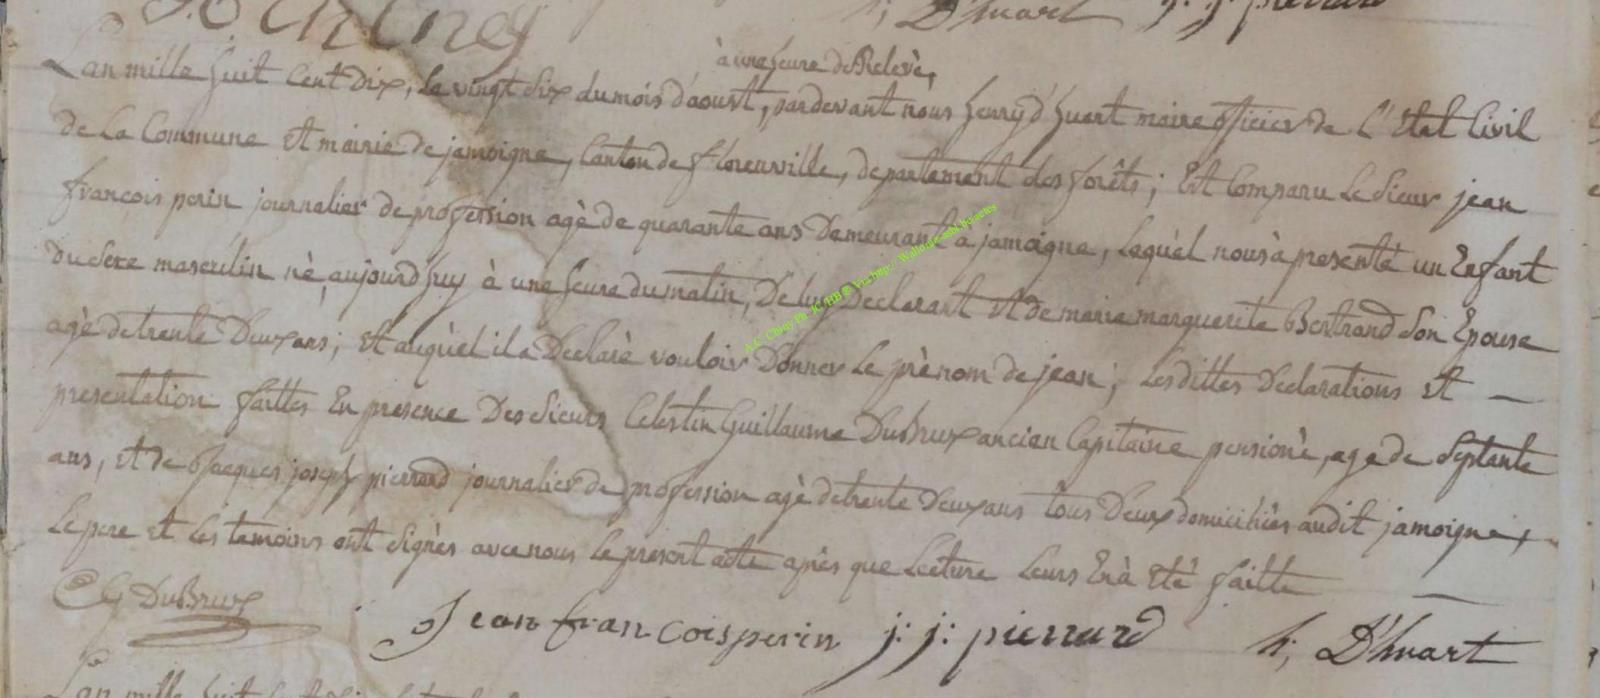 h; D'huart j. j: pierrard
à une heure de Relevè,
L'an mille huit Cent Dix, Le vingt Six du mois d'aoust, pardevant nous henry d'huart maire officier de L'Etat Civil
de La Commune Et mairie de jamoigne, Canton de florenville, departement des forêts; Est Comparu Le Sieur jean
françois perin journalier de profession agè de quarante ans Demeurant à jamoigne, Lequel nous à presenté un Enfant
du Sexe masculin nè, aujourd huy à une heure du matin, De luy Declarant Et de marie marguerite Bertrand Son Epouse
agè de trente Deux ans; Et auquèl il a Declarè vouloir Donner Le prènom de jean; Lesdittes Declarations Et
presentation faittes En presence Des Sieurs Celestin Guillaume DuBrux ancien Capitaine pensionè, age de Septante
ans, Et de Jacques joseph pierrard journalier de profession agè de trente Deux ans tous Deux domiciliès audit jamoigne,
Le pere Et Les temoins ont Signès avec nous Le present acte après que Lecture Leurs En à Eté faitte
CG DuBrux Jean francois perin j: j: pierrard h; D'huart
L'an mille huit Cent Dix